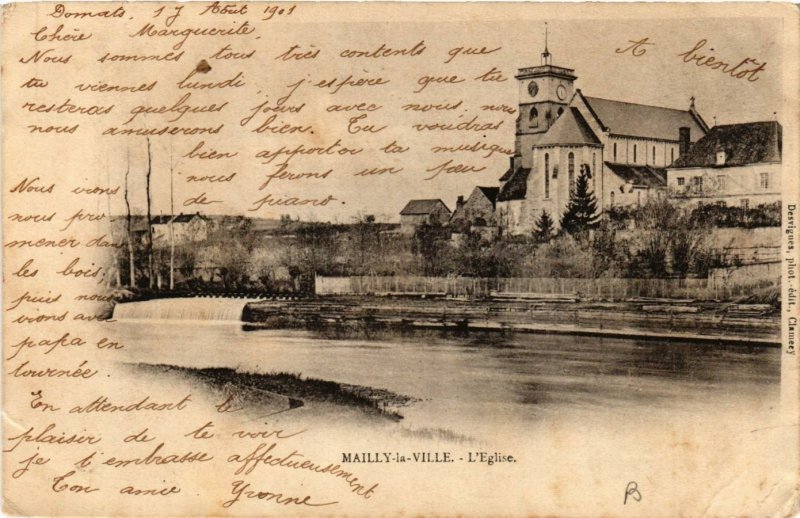 Domats, 17 Août 1901
Chère Marguerite,
Nous sommes tous très contents que
tu viennes lundi, j'espère que tu
resteras quelques jours avec nous. nous
nous amuserons bien. Tu voudras
bien apporter ta musique
nous ferons un peu
de piano.
Nous irons
nous pro
mener dans
les bois,
puis nous
irons avec
papa en
tournée.
En attendant le
plaisir de te voir
je t'embrasse affectueusement
Ton amie Yvonne
A bientôt
MAILLY-la-VILLE. - L'Eglise.
Desvignes, phot.-édit., Clamecy
B